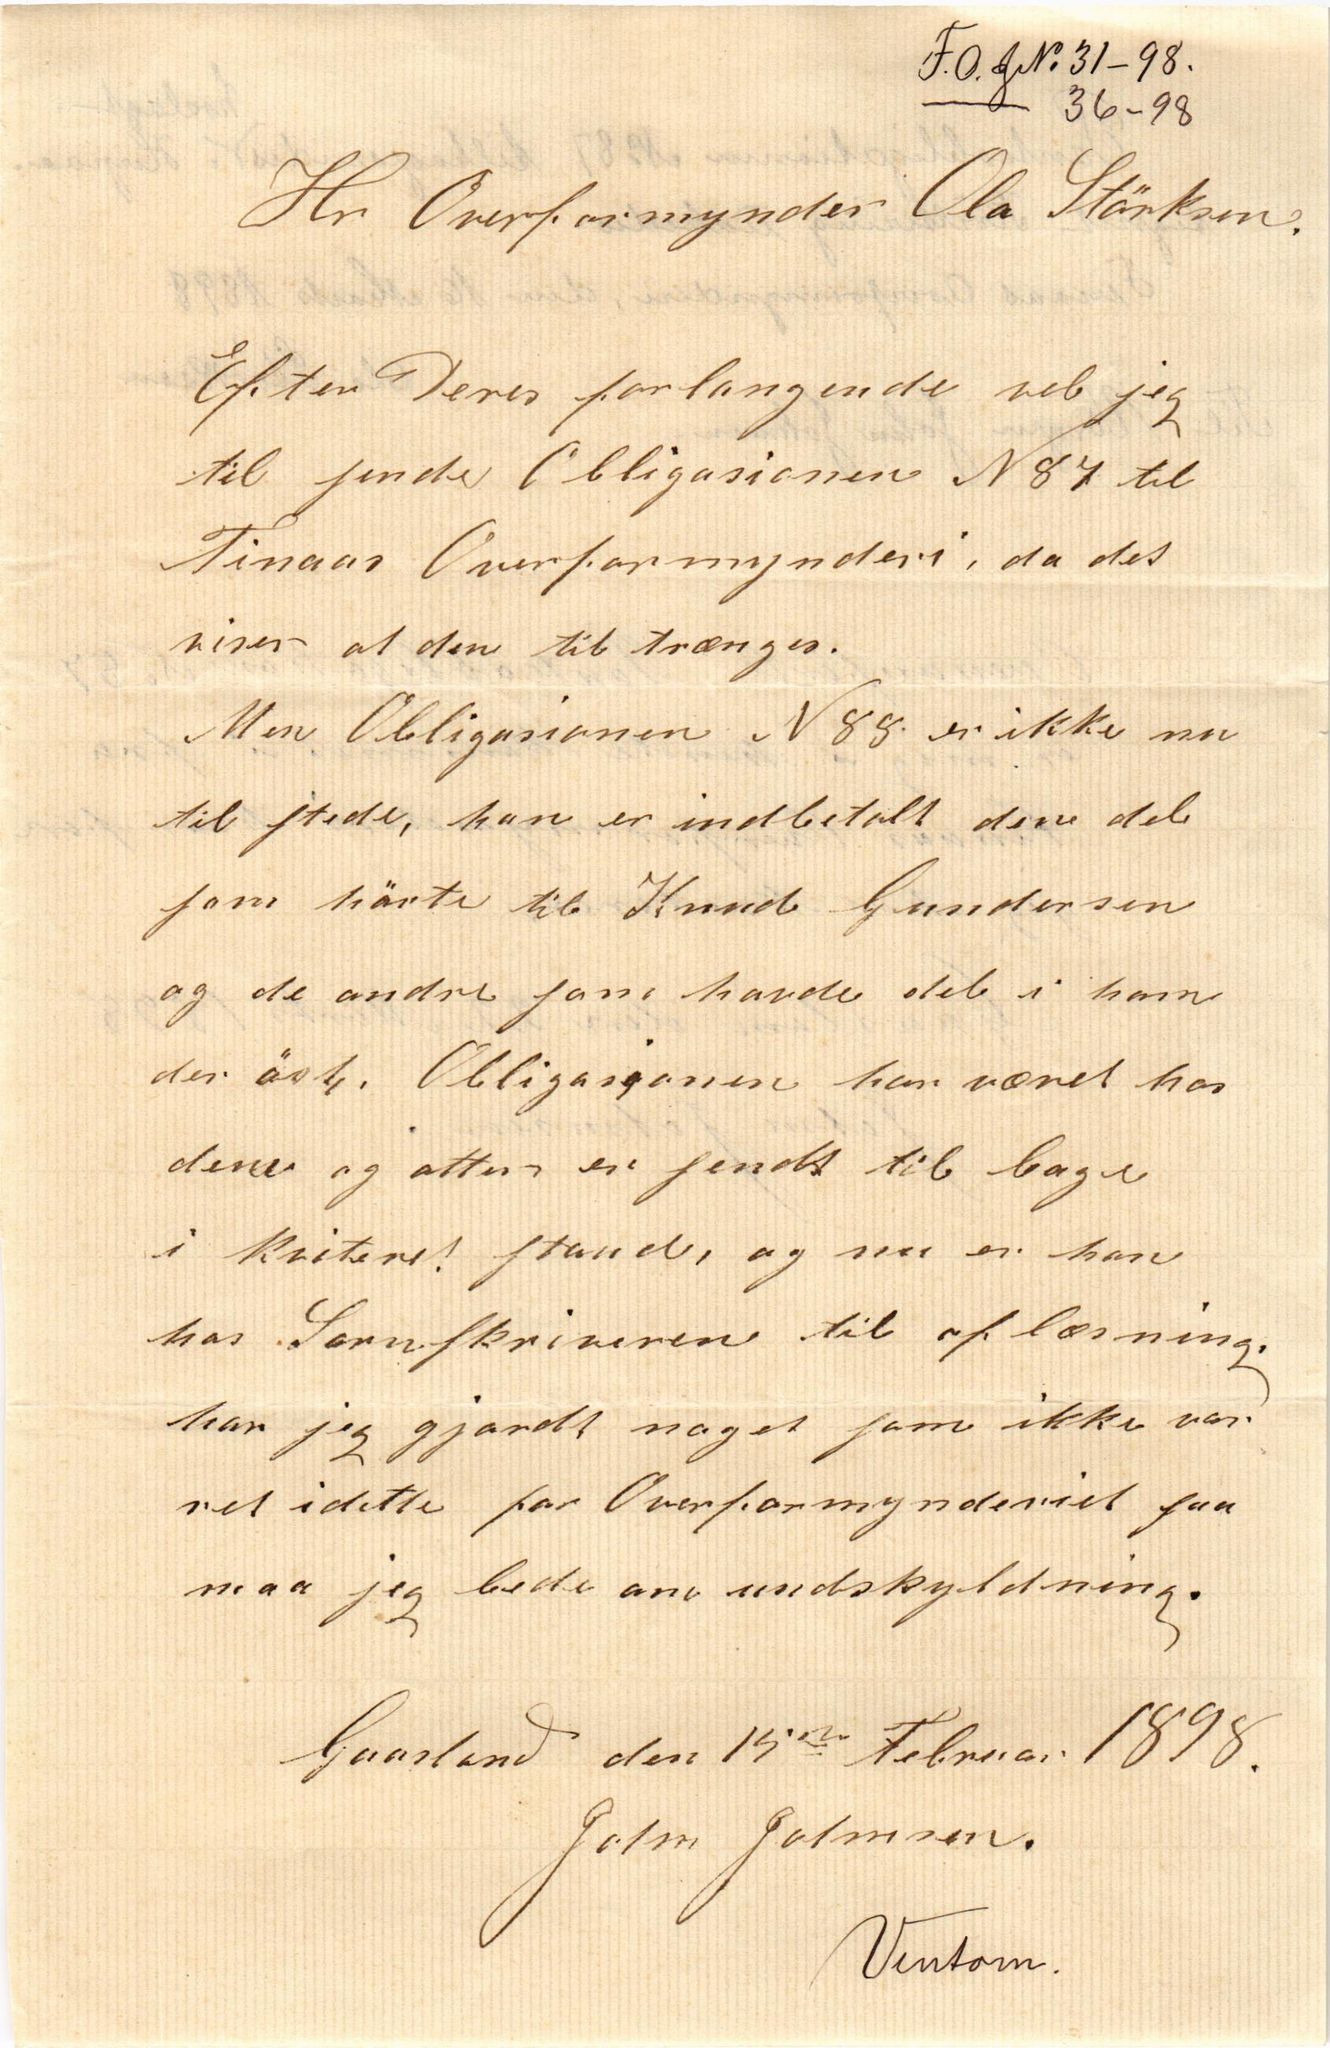 F.O. J№ 31-98.
36-98
Hr Overformynder Ola Störksen.
Efter Deres forlangende vel jeg
til sende Obligasionen N 87 til
Finaas Overformynderi, da det
viser at den til trænges.
Men Obligasionen N 88 er ikke nu
til stede, han er indbetalt den del
som hörte til Knud Gundersen
og de andre som havde del i ham
der öst, Obligasionen har været hos
dem og atter er sendt til bage
i kviteret stand, og nu er han
hos Sornskriveren til aflæsning.
har jeg gjordt noget som ikke var
ret i dette for Overformynderiet saa
maa jeg bede om undskyldning.
Gaasland den 15de Februar 1898.
John Johnsen.
Ventom.